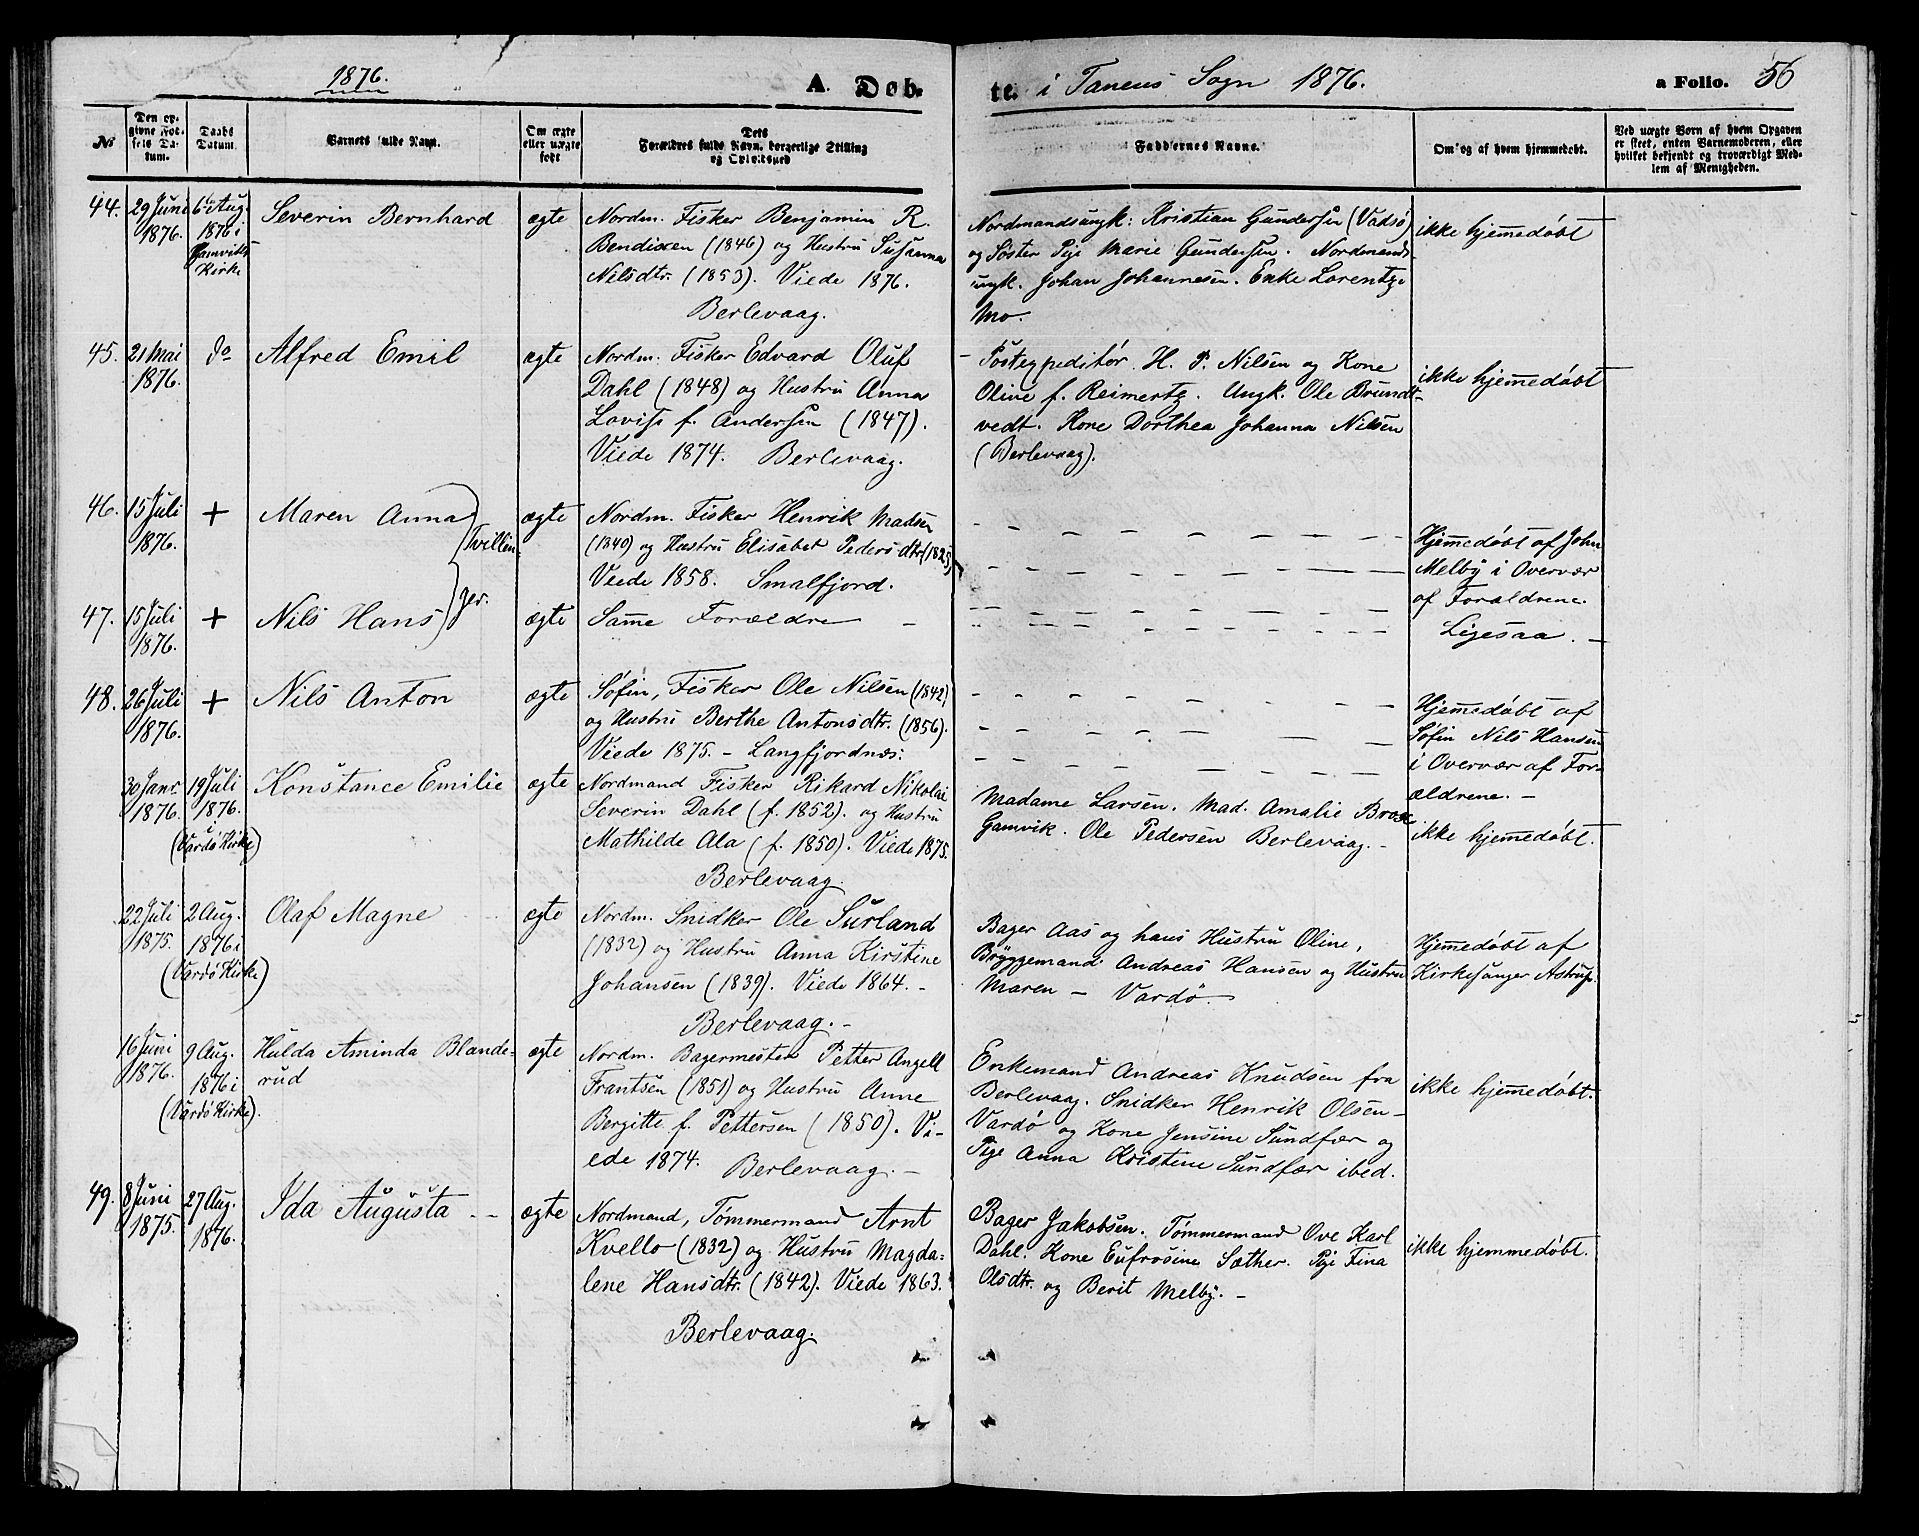 1876.
A. Døb-
te. i Tanens Sogn 1876.
a Folio. 56
No
Den op-
givne Fød-
sels Da-
tum.
Daabs
Datum.
Barnets fulde Navn.
Om ægte
eller uægte
født
Dets
Forældres fulde Navn, borgerlige Stilling
og Opholdssted
Faddernes Navne.
Om og af hvem hjemmedøbt.
Ved uægte Børn af hvem Opgaven
er skeet, enten Barnemoderen, eller
hvilket bekjendt og troværdigt Med-
lem af Menigheden.
44.
29 Juni
1876.
6te Aug.
1876 i
Gamviks
Kirke
Severin Bernhard
ægte
Nordm. Fisker Benjamin R.
Bendixen (1846) og Hustru Susanna
Nilsdtr. (1853). Viede 1876.
Berlevaag.
Nordmandsungk: Kristian Gundersen (Vadsø)
og Søster Pige Marie Gundersen. Nordmand
ungk. Johan Johannesen. Enke Lorentze
Mo.
ikke hjemedøbt
45.
21 Mai
1876.
do
Alfred Emil
ægte
Nordm. Fisker Edvard Oluf
Dahl (1848) og Hustru Anna
Lovise f. Andersen (1847).
Viede 1874. Berlevaag.
- Postexpeditør H. P. Nilsen og Kone
Olive f. Reimertz. Ungk. Ole Brundt-
vedt. Kone Dorthea Johanna Nilsen
(Berlevaag).
ikke hjemedøbt
46.
15 Juli
1876.
+
Maren Anna
Tvillin-
ægte
Nordm. Fisker Henrik Madsen
(1840) og Hustru Elisabet Pedersdtr.
Viede 1858. Smalfjord.
Hjemedøbt af John
Melby i Overvær
af Forældrene.
47.
15 Juli
1876.
+
Nils Hans
ger.
ægte
Same Forældre
Ligesaa.
48.
26 Juli
1876.
+
Nils Anton
ægte
Søfin, Fisker Ole Nilsen (1842)
og Hustru Berthe Antonsdtr. (1856).
Viede 1875. - Langfjordnæs.
Hjemedøbt af
Søfin Nils Hansen
i Overvær af For-
ældrene. -
30 Janr.
1876.
19 Juli
1876.
(Vardø Kirke)
Konstance Emilie
ægte
Nordmand Fisker Rikard Nikolai
Severin Dahl (f. 1852). og Hustru
Mathilde Ala (f. 1850). Viede 1875.
Berlevaag.
Madame Larsen. Mad. Amalie
Gamvik. Ole Pedersen Berlevaag. -
ikke hjemedøbt.
22 Juli
1875.
2 Aug.
1876 i
(Vardø Kirke)
Olaf Magne
ægte
Nordm. Snidker Ole Surland
(1832) og Hustru Anna Kirstine
Johansen (1839). Viede 1864. -
Berlevaag. -
Bager Aas og hans Hustru Oline,
Bryggemand Andreas Hansen og Hustru
Maren - Vardø.
Hjemedøbt af
Kirkesanger Astrup.
16 Juni
1876.
9 Aug.
1876 i
(Vardø Kirke).
Hulda Aminda Blande-
rud
ægte
Nordm. Bagermester Petter Angell
Frantsen (1851) og Hustru Anne
Bergitte f. Pettersen (1850). Vi-
ede 1874. Berlevaag. -
Enkemand Andreas Knudsen fra
Berlevaag. Snidker Henrik Olsen -
Vardø og Kone Jensine Sundfær og
Pige Anna Kristine Sundfær ibed.
ikke hjemedøbt.
49.
8 Juni
1875.
27 Aug.
1876.
Ida Augusta
ægte
Nordmand, Tømmermand Arnt
Kvello (1832) og Hustru Magda-
lene Hansdtr. (1842). Viede 1863.
Berlevaag.
Bager Jakobsen. Tømmermand Ove Karl
Dahl. Kone Eufrosine Sæther. Pige Fina
Olsdtr. og Berit Melby. -
ikke hjemmedøbt.